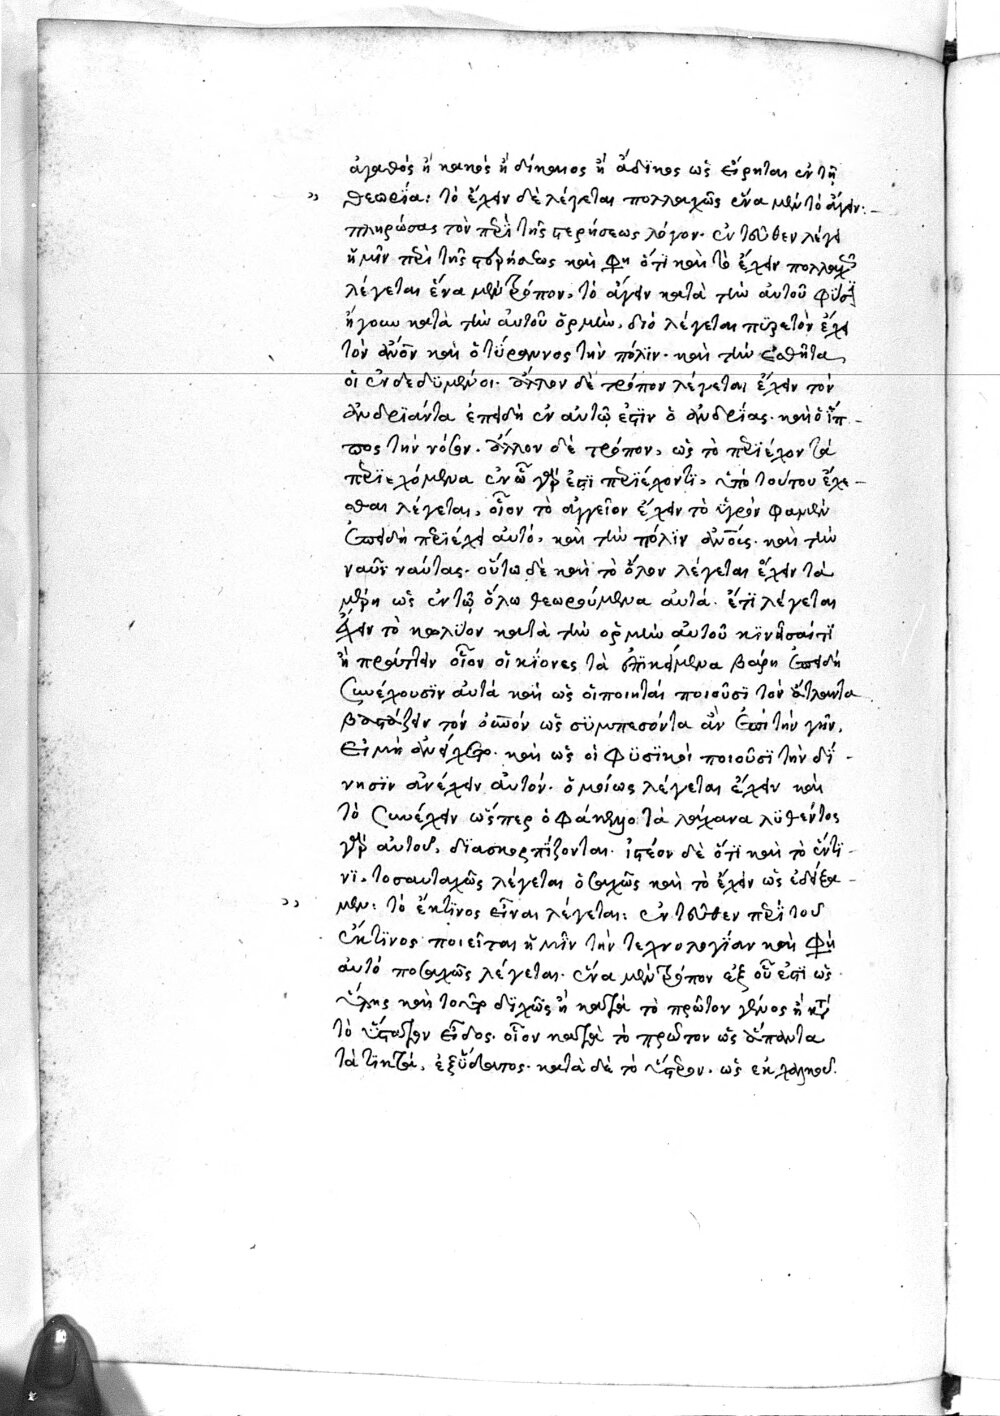 ἀγαθός ἢ κακός ἢ δίκαιος ἢ ἄδικος ὡς εἴρηται ἐν τῇ
θεωρίᾳ: τὸ ἔχειν δὲ λέγεται πολλαχῶς ἕνα μὲν τὸ ἄγειν:
πληρώσας τὸν περὶ τῆς στερήσεως λόγον. ἐντεῦθεν λέγει
ἡμῖν περὶ τῆς καὶ φη ὅτι καὶ τὸ ἔχειν πολλαχῶς
λέγεται ἕνα μὲν τρόπον, τὸ ἄγειν κατὰ τὴν αὐτοῦ φύσιν
ἤγουν κατὰ τὴν αὐτοῦ ὁρμήν. διὸ λέγεται πυρετὸν ἔχει
τὸν ἄνον καὶ ὁ τύραννος τὴν πόλιν. καὶ τὴν ἐσθῆτα
οἱ ἐνδεδυμένοι. ἄλλον δὲ τρόπον λέγεται ἔχειν τὸν
ἀνδριάντα ἐπειδὴ ἐν αὐτῷ ἐστιν ὁ ἀνδριάς. καὶ ὁ ἵπ-
πος τὴν νόσον. ἄλλον δὲ τρόπον, ὡς τὸ περιέχον τὰ
περιεχόμενα ἐν ᾧ γάρ ἐστι περιέχοντι, ὑπὸ τούτου ἔχε-
σθαι λέγεται, οἷον τὸ ἀγγεῖον ἔχειν τὸ ὑγρόν φαμεν
ἐπειδὴ περιέχει αὐτό, καὶ τὴν πόλιν ἀνους. καὶ τὴν
ναῦν ναύτας. οὕτω δὲ καὶ τὸ ὅλον λέγεται ἔχειν τὰ
μέρη ὡς ἐν τῷ ὅλω θεωρούμενα αὐτά. ἔτι λέγεται
ἔχειν τὸ κωλῦον κατὰ τὴν ὁρμὴν αὐτοῦ κινῆσαί τι
ἢ πράττειν οἷον οἱ κίονες τὰ ἐπικείμενα βάρη ἐπειδὴ
συνέχουσιν αὐτὰ καὶ ὡς οἱ ποιηταὶ ποιοῦσι τὸν ἄτλαντα
βαστάζειν τὸν οὐνόν ὡς συμπεσόντα ἂν ἐπὶ τὴν γῆν,
εἰ μὴ ἀνεῖχετο. καὶ ὡς οἱ φυσικοὶ ποιοῦσι τὴν δί-
νησιν ἀνέχειν αὐτόν. ὁμοίως λέγεται ἔχειν καὶ
τὸ συνέχειν ὥσπερ ὁ φάκελλος τὰ λάχανα λυθέντος
γὰρ αὐτοῦ, διασκορπίζονται. ἰστέον δὲ ὅτι καὶ τὸ ἔν τι-
νι, τοσαυταχῶς λέγεται ὁσαχῶς καὶ τὸ ἔχειν ὡς ἐδείξα-
μεν: τὸ ἔκ τινος εἶναι λέγεται: ἐντεῦθεν περὶ τοῦ
ἔκ τινος ποιεῖται ἡμῖν τὴν τεχνολογίαν καὶ φη
αὐτό ποσαχῶς λέγεται. ἕνα μὲν τρόπον ἐξ οὗ ἐστι ὡς
ὕλης καὶ τοῦτο διχῶς ἢ κατὰ τὸ πρῶτον γένος ἢ κατὰ
τὸ ὕστατον εἶδος. οἷον κατὰ τὸ πρῶτον ὡς ἅπαντα
τὰ τηκτά, ἐξ ὕδατος. κατὰ δὲ τὸ ὕστερον. ὡς ἐκ χαλκοῦ.